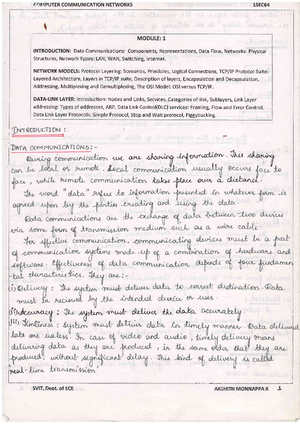 COMPUTER COMMUNICATION NETWORKS 15EC64
MODULE: 1
INTRODUCTION: Data Communications: Components, Representations, Data Flow, Networks: Physical
Structures, Network Types: LAN, WAN, Switching, Internet.
NETWORK MODELS: Protocol Layering: Scenarios, Principles, Logical Connections, TCP/IP Protocol Suite:
Layered Architecture, Layers in TCP/IP suite, Description of layers, Encapsulation and Decapsulation,
Addressing, Multiplexing and Demultiplexing, The OSI Model: OSI versus TCP/IP.
DATA-LINK LAYER: Introduction: Nodes and Links, Services, Categories of link, Sublayers, Link Layer
addressing: Types of addresses, ARP. Data Link Control(DLC) services: Framing, Flow and Error Control,
Data Link Layer Protocols: Simple Protocol, Stop and Wait protocol, Piggybacking.
INTRODUCTION :
DATA COMMUNICATIONS:-
During communication we are sharing information. This sharing
can be local or remote. Local communication usually occurs face to
face, while remote communication takes place over a distance.
The word "data" refers to information presented in whatever form is
agreed upon by the parties creating and using the data.
Data communications are the exchange of data between two devices
via some form of transmission medium such as a wire cable.
For effective communication, communicating devices must be a part
of communication systems made up of a combination of hardware and
software. Effectiveness of data communication depends of four fundamen
tal characteristics. They are:
i) Delivery: The system must deliver data to correct distination. Data
must be recieved by the intended device or user.
ii) Accuracy: The system must deliver the data accurately
iii) Timliness: system must deliver data in timely manner. Data delivered
late are useless. In case of video and audio, timely delivery means
delivering data as they are produced, in the same order that they are
produced, without significant delay. This kind of delivery is called
real-time transmission
SVIT, Dept. of ECE AKSHITH MONNAPPA K 1